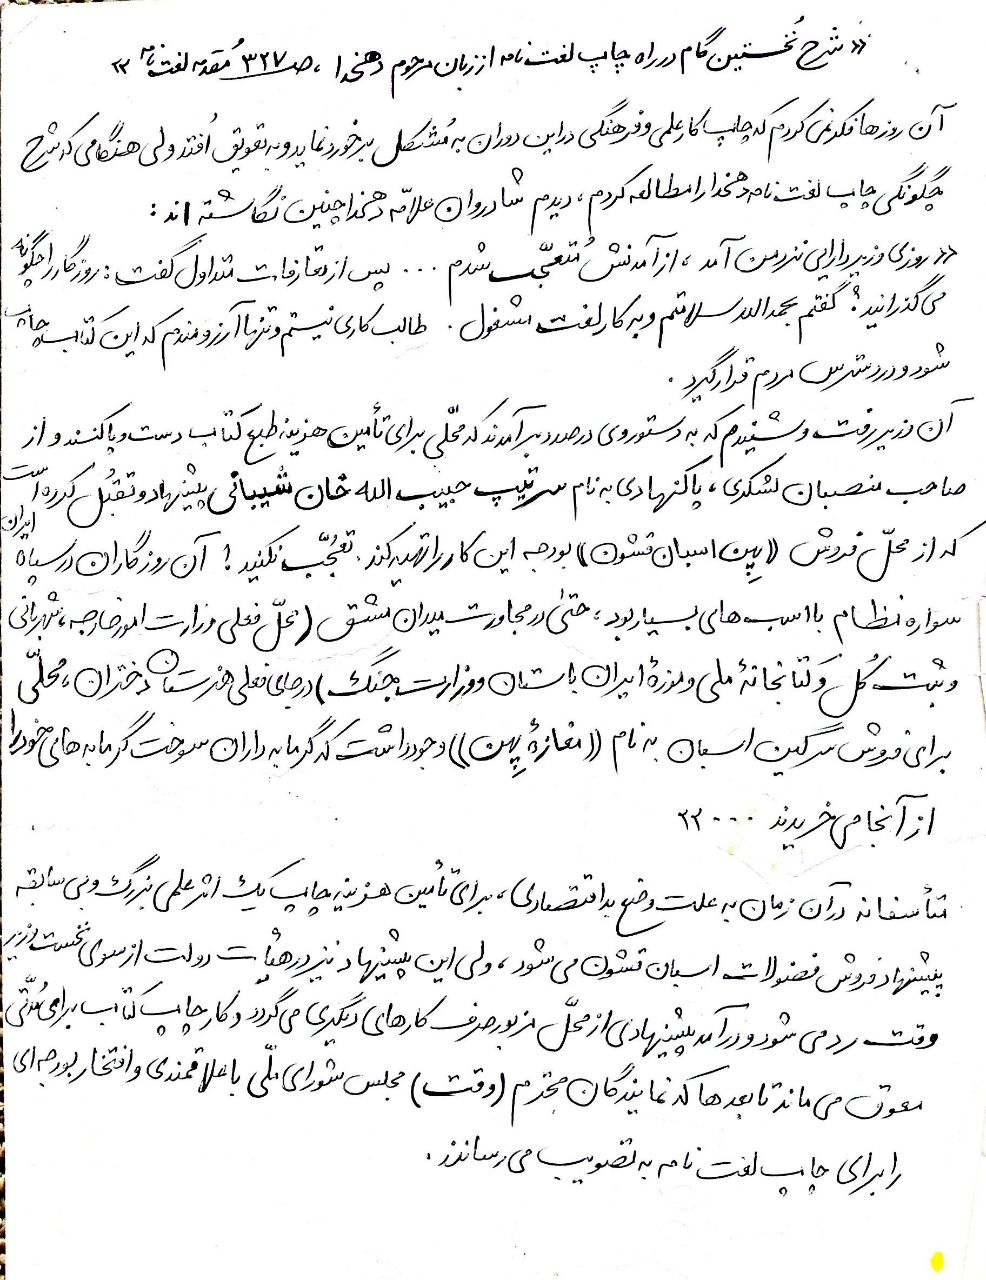 « شرح نُخستین گام در راه چاپ لغت نامه از زبان مرحوم دهخدا ، ص ۳۲۷ مُقدمه لغت نامه »
آن روزها فکر نمی کردم که چاپ کار علمی و فرهنگی در این دوران به مُشکل برخورد نماید و به تعویق اُفتد ولی هنگامی که شرح
چگونگی چاپ لغت نامه دهخدا را مطالعه کردم ، دیدم شادروان علامّه دهخدا چنین نگاشته اند :
« روزی وزیر دارایی نزد من آمد ، از آمدنش مُتعجّب شدم ... پس از تعارفات متداول گفت : روزگار را چگونه
می گذرانید ؟ گفتم بحمدالله سلامتم و به کار لغت مشغول . طالب کاری نیستم و تنها آرزومندم که این کتاب چاپ
شود و در دسترس مردم قرار گیرد .
آن وزیر رفت و شنیدم که به دستور وی درصدد برآمدند که محلّی برای تأمین هزینه طبع کتاب دست و پا کنند و از
صاحب منصبان لشکری ، پاکنهادی به نام سرتیپ حبیب الله خان شیبانی پیشنهاد و تقبُل کرده است
که از محلّ فروش ((پِهِن اسبان قشون)) بودجه این کار را تهیه کند . تعجُّب نکنید ! آن روزگاران در سپاه ایران
سواره نظام با اسب های بسیار بود ، حتی در مجاورت میدان مشق (محلّ فعلی وزارت امور خارجه ، شهربانی
و ثبت کُل و کتابخانهٔ ملی و موزهٔ ایران باستان و وزارت جنگ) در جای فعلی هنرستان دختران ، محلّی
برای فروش سرگین اسبان به نام ((مغازهٔ پِهِن)) وجود داشت که گرمابه داران سوخت گرمابه های خود را
از آنجا می خریدند ... »
متأسفانه در آن زمان به علت وضع بد اقتصادی ، برای تأمین هزینه چاپ یک اثر علمی بزرگ و بی سابقه
پیشنهاد فروش فضولات اسبان قشون می شود ، ولی این پیشنهاد نیز در هیأت دولت از سوی نخست وزیر
وقت رد می شود و درآمد پیشنهادی از محلّ مزبور صرف کارهای دیگری می گردد و کار چاپ کتاب برای مُدّتی
معوق می ماند تا بعدها که نمایندگان محترم (وقت) مجلس شورای ملّی با علاقمندی و افتخار بودجه ای
را برای چاپ لغت نامه به تصویب می رسانند .